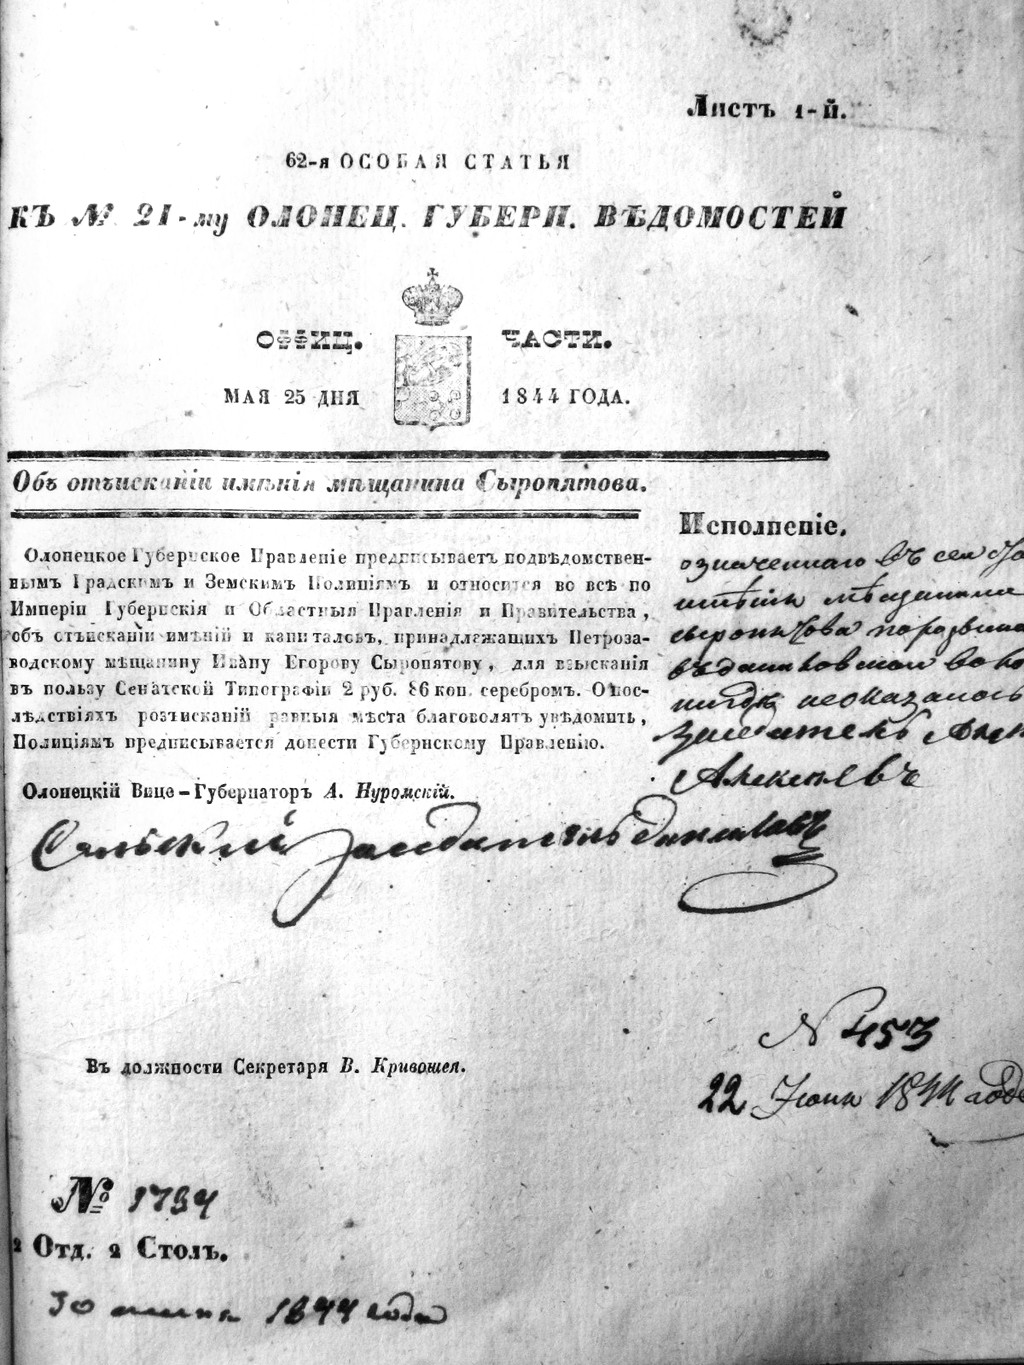 Листъ 1-й.
62-я ОСОБАЯ СТАТЬЯ
КЪ № 21-му ОЛОНЕЦ. ГУБЕРН. ВѢДОМОСТЕЙ
ОФФИЦ. ЧАСТИ.
МАЯ 25 ДНЯ 1844 ГОДА.
Объ отъисканіи имѣнія мѣщанина Сыропятова.
Олонецкое Губернское Правленіе предписываетъ подвѣдомствен-
нымъ Градскимъ и Земскимъ Полиціямъ и относится во всѣ по
Имперіи Губернскія и Областныя Правленія и Правительства,
объ отъисканіи имѣній и капиталовъ, принадлежащихъ Петроза-
водскому мѣщанину Ивану Егорову Сыропятову, для взысканія
въ пользу Сенатской Типографіи 2 руб. 86 коп. серебромъ. О пос-
лѣдствіяхъ розъисканій равныя мѣста благоволятъ увѣдомить,
Полиціямъ предписывается донести Губернскому Правленію.
Олонецкій Вице-Губернаторъ А. Нуромскій.
Исполненіе.
означеннаго въ сей
имѣнія мѣщанина
сыропятова по розыска
не оказалось
Засѣдатель
Алексѣевъ
Сельский Засѣдатель
№ 453
22 Іюня 1844 года
Въ должности Секретаря В. Кривошея.
№ 1794
2 Отд. 2 Столъ.
30 1844 года